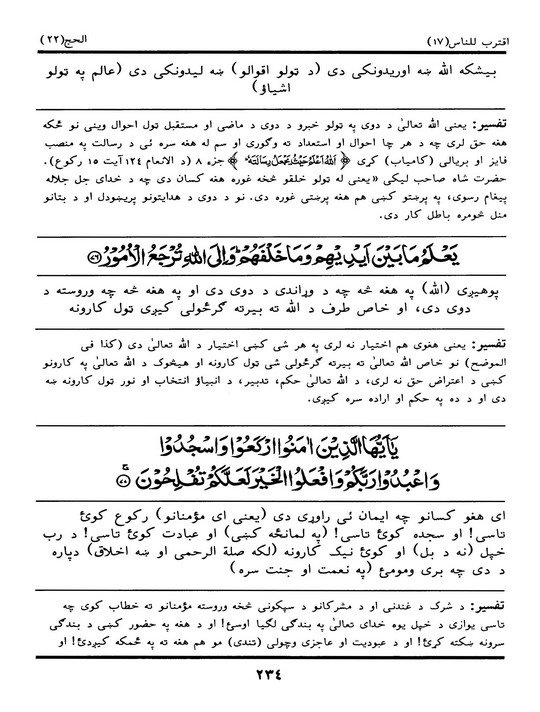 اقترب للناس(۱۷)
الحج(۲۲)
بيشكه الله ښه اوريدونكى دى (د ټولو اقوالو) ښه ليدونكى دى (عالم په ټولو
اشياؤ)
تفسير: يعنى الله تعالىٰ د دوى په ټولو خبرو د دوى د ماضى او مستقبل ټول احوال وينى نو ځكه
هغه حق لرى چه د هر چا احوال او استعداد ته وګورى او سم له هغه سره ئى د رسالت په منصب
فايز او بريالى (كامياب) كړى ﴿اَللهُ اَعْلَمُ حَيْثُ يَجْعَلُ رِسَالَتَهٗ﴾ جزء ۸ (د الانعام ۱۲٤ آيت ۱۵ ركوع).
حضرت شاه صاحب ليكى «يعنى له ټولو خلقو څخه غوره هغه كسان دى چه د خداى جل جلاله
پيغام رسوى، په پرښتو كښى هم هغه پرښتى غوره دى. نو د دوى د هدايتونو پريښودل او د بتانو
منل څومره باطل كار دى.
يَعْلَمُ مَا بَيْنَ اَيْدِيْهِمْ وَمَا خَلْفَهُمْ وَاِلَى اللهِ تُرْجَعُ الْاُمُوْرُ ﴿۷۶﴾
پوهيږى (الله) په هغه څه چه د وړاندى د دوى دى او په هغه څه چه وروسته د
دوى دى، او خاص طرف د الله ته بيرته ګرځولى كيږى ټول كارونه
تفسير: يعنى هغوى هم اختيار نه لرى په هر شى كښى اختيار د الله تعالىٰ دى (كذا فى
الموضح) نو خاص الله تعالىٰ ته بيرته ګرځولى شى ټول كارونه او هيڅوك د الله تعالىٰ په كارونو
كښى د اعتراض حق نه لرى، د الله تعالىٰ حكم، تدبير، د انبياؤ انتخاب او نور ټول كارونه ښه
دى او د ده په حكم او اراده سره كيږى.
يٰۤاَيُّهَا الَّذِيْنَ اٰمَنُوا ارْكَعُوْا وَاسْجُدُوْا
وَاعْبُدُوْا رَبَّكُمْ وَافْعَلُوا الْخَيْرَ لَعَلَّكُمْ تُفْلِحُوْنَ ﴿۷۷﴾
اى هغو كسانو چه ايمان ئى راوړى دى (يعنى اى مؤمنانو) ركوع كوئ
تاسى! او سجده كوئ تاسى! (په لمانځه كښى) او عبادت كوئ تاسى! د رب
خپل (نه د بل) او كوئ نيک كارونه (لكه صلة الرحمى او ښه اخلاق) دپاره
د دى چه برى ومومئ (په نعمت او جنت سره)
تفسير: د شرک د غندنى او د مشركانو د سپكونى څخه وروسته مؤمنانو ته خطاب كوى چه
تاسى يوازى د خپل يوه خداى تعالىٰ په بندګى لګيا اوسئ! او د هغه په حضور كښى د بندګى
سرونه ښكته كړئ! او د عبوديت او عاجزى وچولى (تندى) مو هم هغه ته په ځمكه كيږدئ! او
۲۳٤